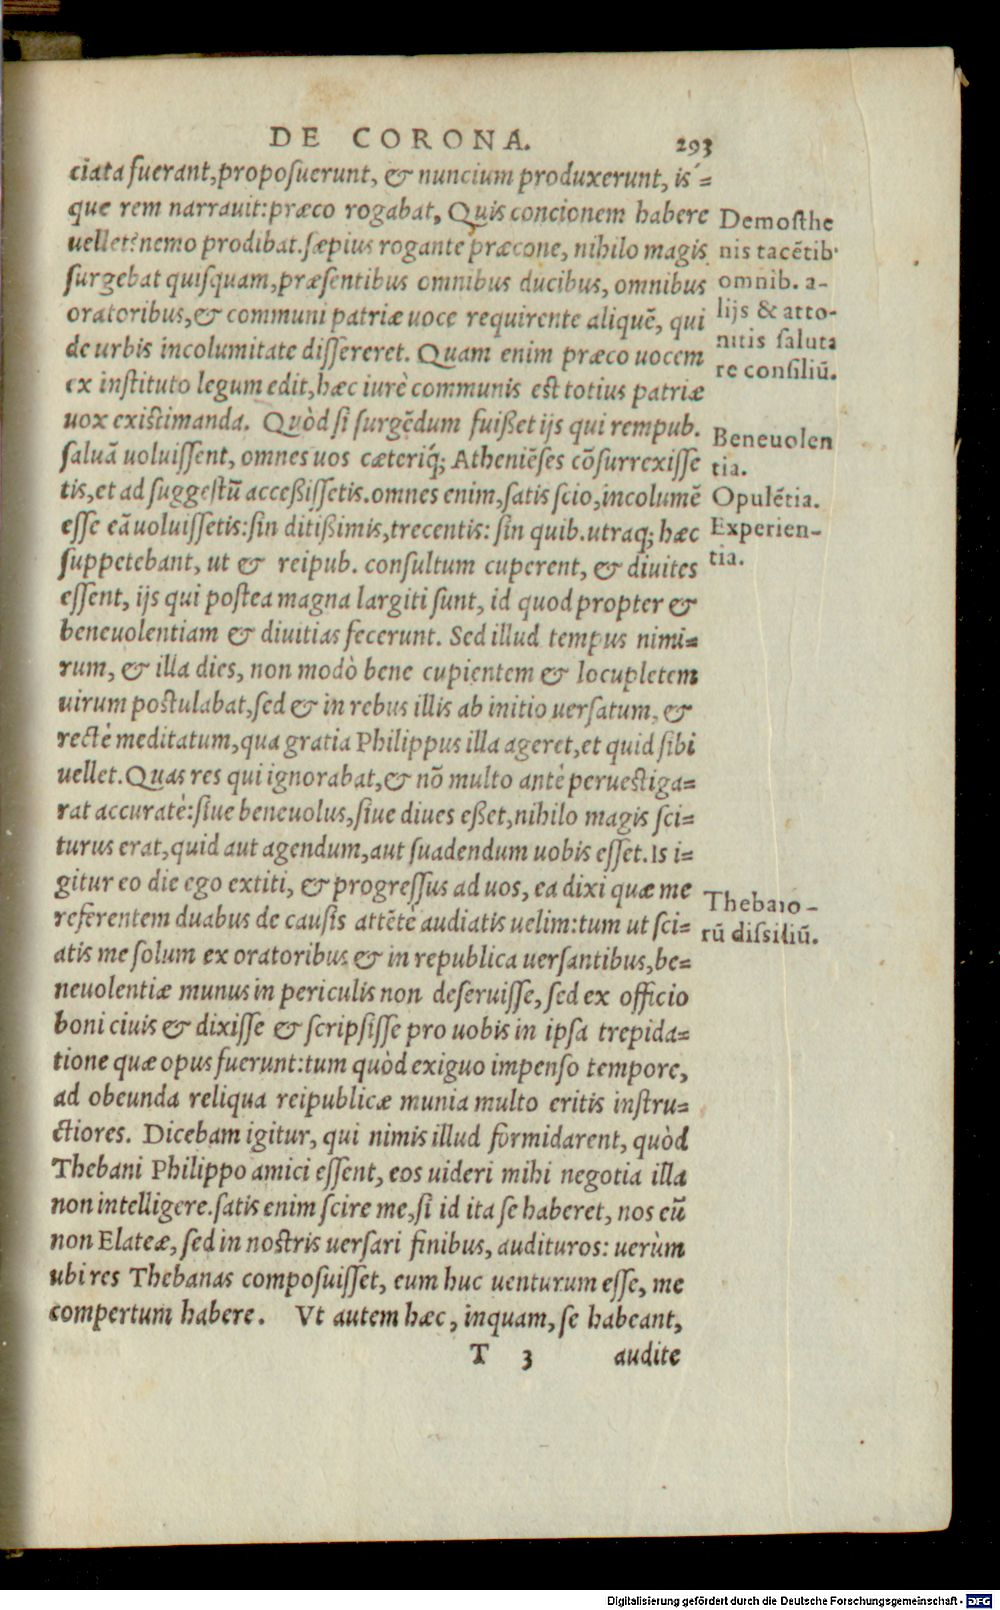 DE CORONA. 293
ciata fuerant, proposuerunt, & nuncium produxerunt, is=
que rem narrauit: præco rogabat, Quis concionem habere
uellet? nemo prodibat. sæpius rogante præcone, nihilo magis
surgebat quisquam, præsentibus omnibus ducibus, omnibus
oratoribus, & communi patriæ uoce requirente aliquē, qui
de urbis incolumitate dissereret. Quam enim præco uocem
ex instituto legum edit, hæc iurè communis est totius patriæ
uox existimanda. Quòd si surgēdum fuißet ijs qui rempub.
saluā uoluissent, omnes uos cæteriq́; Atheniēses cōsurrexisse
tis, et ad suggestū acceßissetis. omnes enim, satis scio, incolumē
esse eā uoluissetis: sin ditißimis, trecentis: sin quib. utraq; hæc
suppetebant, ut & reipub. consultum cuperent, & diuites
essent, ijs qui postea magna largiti sunt, id quod propter &
beneuolentiam & diuitias fecerunt. Sed illud tempus nimi=
rum, & illa dies, non modò bene cupientem & locupletem
uirum postulabat, sed & in rebus illis ab initio uersatum, &
rectè meditatum, qua gratia Philippus illa ageret, et quid sibi
uellet. Quas res qui ignorabat, & nō multo antè peruestiga=
rat accuratè: siue beneuolus, siue diues eßet, nihilo magis sci=
turus erat, quid aut agendum, aut suadendum uobis esset. Is i=
gitur eo die ego extiti, & progressus ad uos, ea dixi quæ me
referentem duabus de causis attētè audiatis uelim: tum ut sci=
atis me solum ex oratoribus & in republica uersantibus, be=
neuolentiæ munus in periculis non deseruisse, sed ex officio
boni ciuis & dixisse & scripsisse pro uobis in ipsa trepida=
tione quæ opus fuerunt: tum quòd exiguo impenso tempore,
ad obeunda reliqua reipublicæ munia multo eritis instru=
ctiores. Dicebam igitur, qui nimis illud formidarent, quòd
Thebani Philippo amici essent, eos uideri mihi negotia illa
non intelligere. satis enim scire me, si id ita se haberet, nos eū
non Elateæ, sed in nostris uersari finibus, audituros: uerùm
ubi res Thebanas composuisset, eum huc uenturum esse, me
compertum habere. Vt autem hæc, inquam, se habeant,
T 3 audite
Demosthe
nis tacētib'
omnib. a-
lijs & atto-
nitis saluta
re consiliū.
Beneuolen
tia.
Opulētia.
Experien-
tia.
Thebaio-
rū dissiliū.
Digitalisierung gefördert durch die Deutsche Forschungsgemeinschaft - DFG